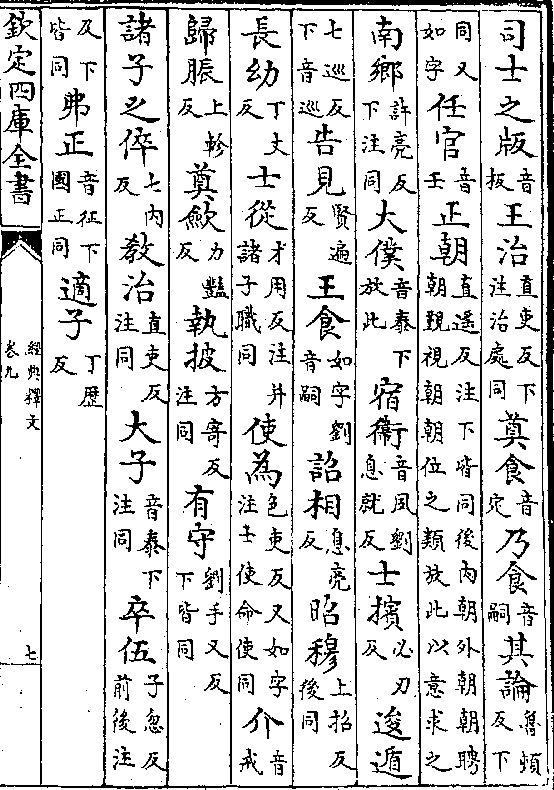 司士之版音板王治直吏反下注治處同奠食音定乃食音嗣其論魯頓反下
同又如字任官音壬正朝直遥反注下皆同後内朝外朝朝聘朝覲視朝朝位之類放此以意求之
南鄉許亮反下注同大僕音泰下放此宿衛音夙劉息就反士擯必刃反逡遁
七巡反下音巡告見賢遍反王食如字劉音嗣詔相息亮反昭穆上招反後同
長幼丁丈反士從才用反注并諸子職同使為色吏反又如字注士使命使同介音戒
歸脤上軫反奠歛力豔反執披方寄反注同有守劉手又反下皆同
諸子之倅七内反教治直吏反注同大子音泰下注同卒伍子忽反前後注
及下皆同弗正音征下國正同適子丁歷反
欽定四庫全書
經典釋文
卷九
七